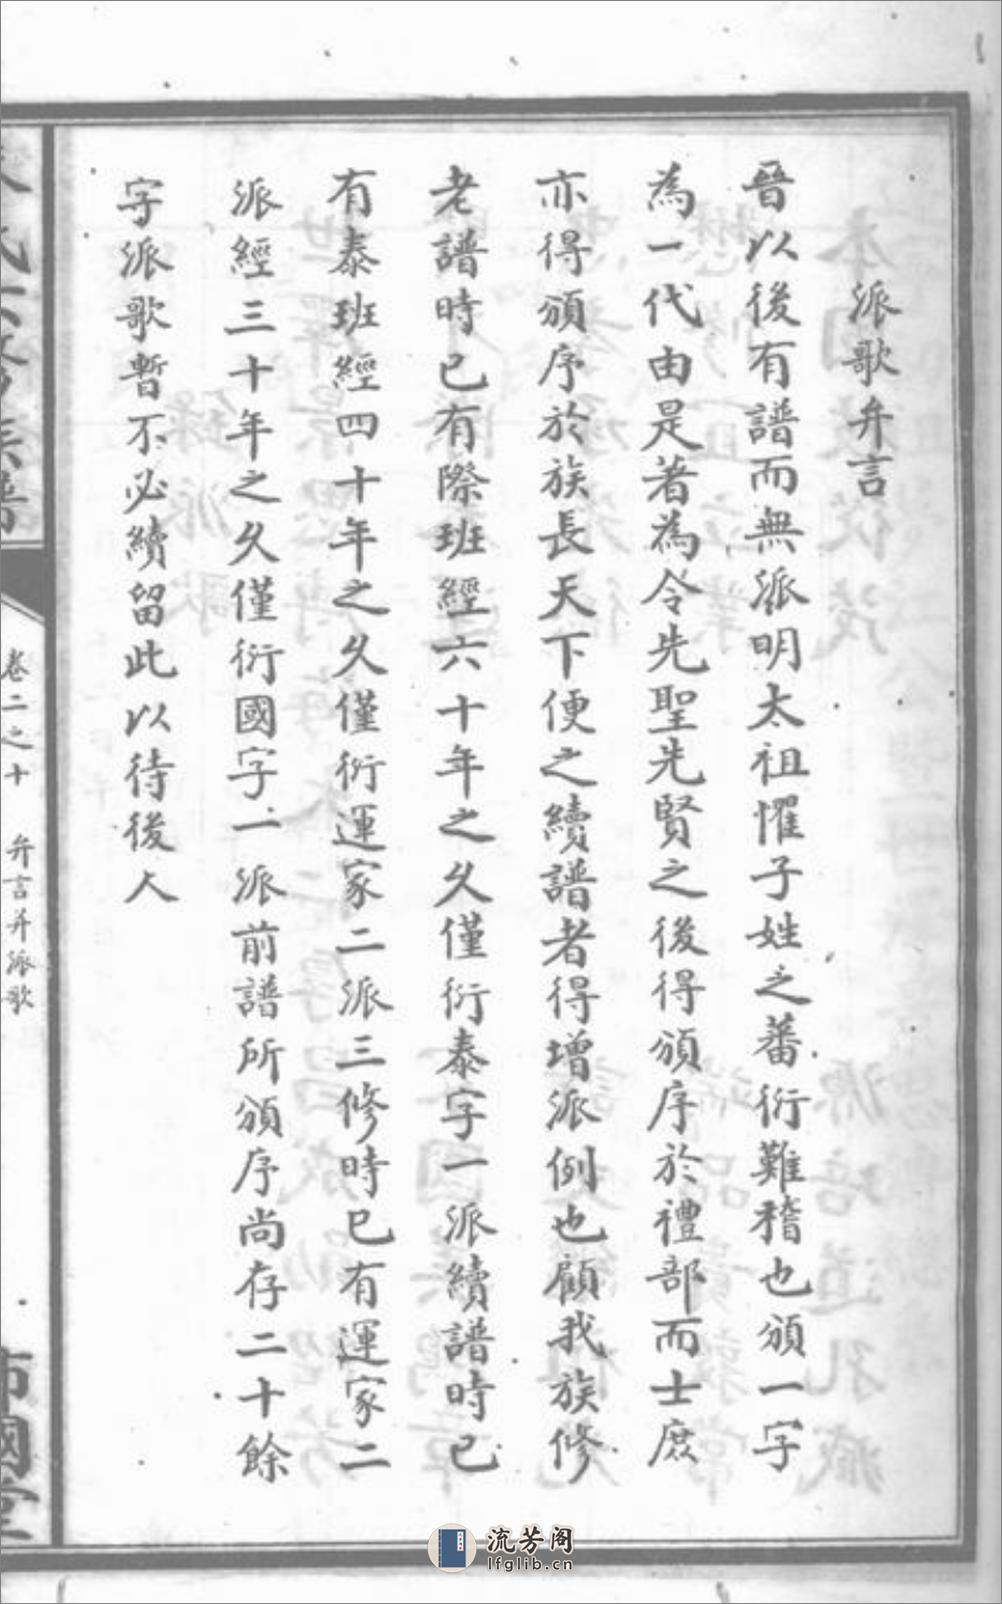 派歌弁言
晉以後有譜而無派明太祖懼子姓之蕃衍難稽也頒一字
為一代由是著為令先聖先賢之後得頒序於禮部而士庶
亦得頒序於族長天下便之續譜者得增派例也顧我族修
老譜時已有際班經六十年之久僅衍泰字一派續譜時已
有泰班經四十年之久僅衍運家二派三修時已有運家二
派經三十年之久僅衍國字一派前譜所頒序尚存二十餘
字派歌暫不必續留此以待後人
卷二之十 弁言并派歌
流芳阁
lfglib.cn